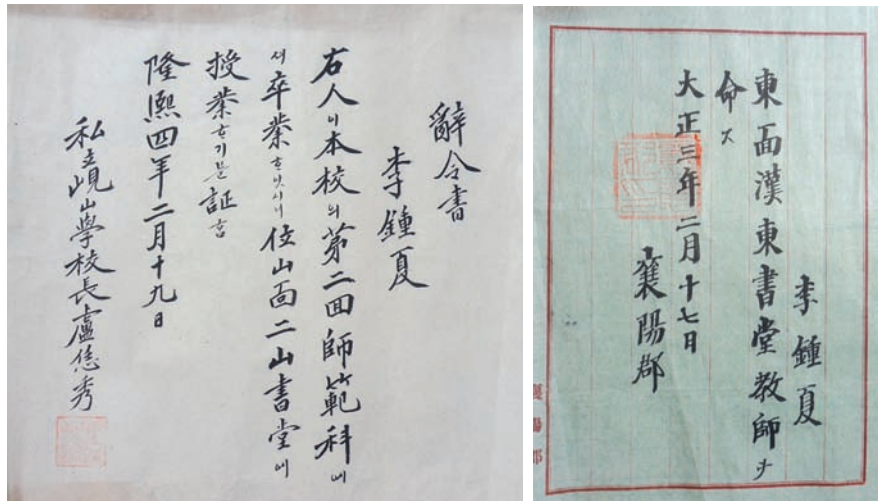 辭令書
李鍾夏
右人이本校의第二回師範科에
셔卒業ᄒᆞ엿시니位山面二山書堂에
授業ᄒᆞ기를証홈
隆熙四年二月十九日
私立峴山學校長盧秀
李鍾夏
東面漢東書堂教師ヲ
命ス
大正三年二月十七日
襄陽郡
襄陽郡